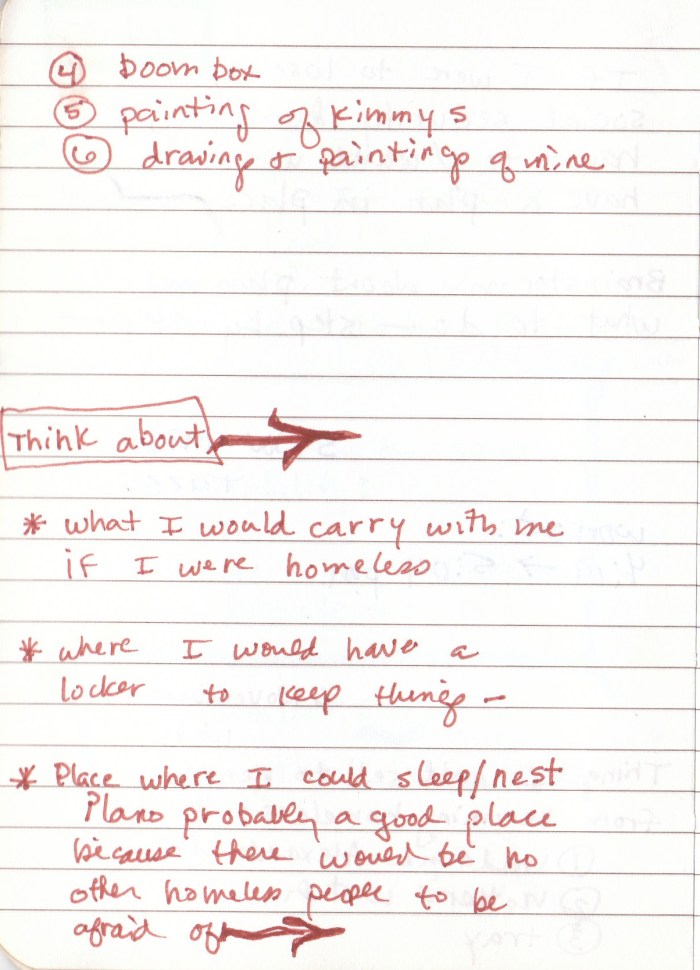 ④ boom box
⑤ painting of Kimmys
⑥ drawings & paintings of mine
Think about
* what I would carry with me
if I were homeless
* where I would have a
locker to keep things –
* Place where I could sleep/nest
Plano probably a good place
because there would be no
other homeless people to be
afraid of